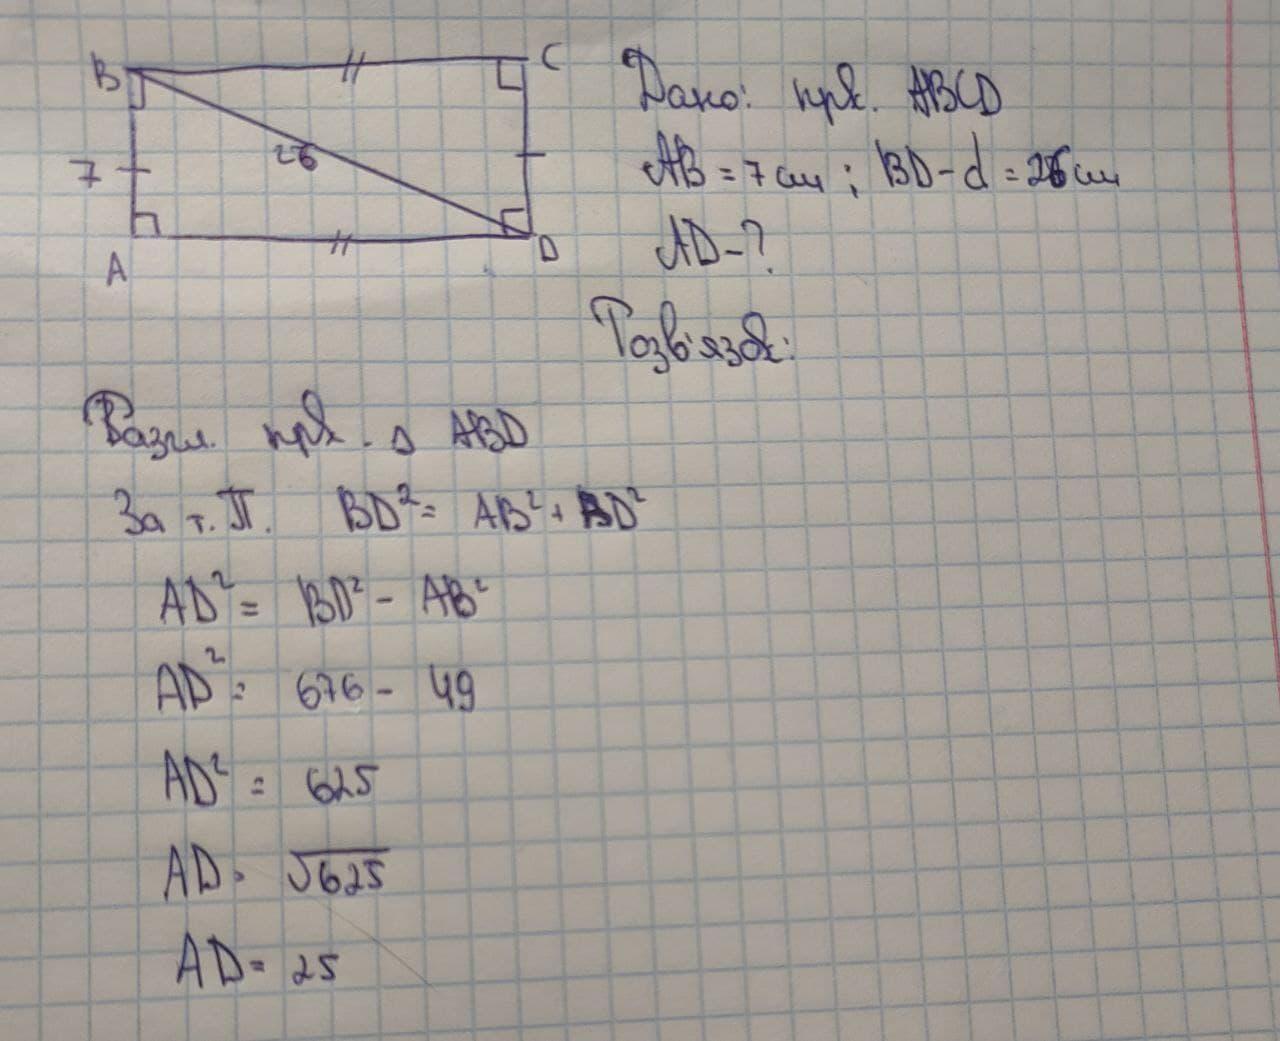 B
C
7
26
A
D
Дано: прк. ABCD
AB = 7 см ; BD - d = 26 см
AD - ?
Розв'язок:
Разгл. прк. Δ ABD
За т. П. BD² = AB² + BD²
AD² = BD² - AB²
AD² = 676 - 49
AD² = 625
AD = √625
AD = 25